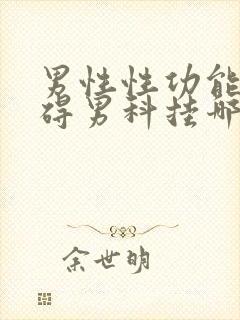 男性性功能
碍男科挂哪
余世明